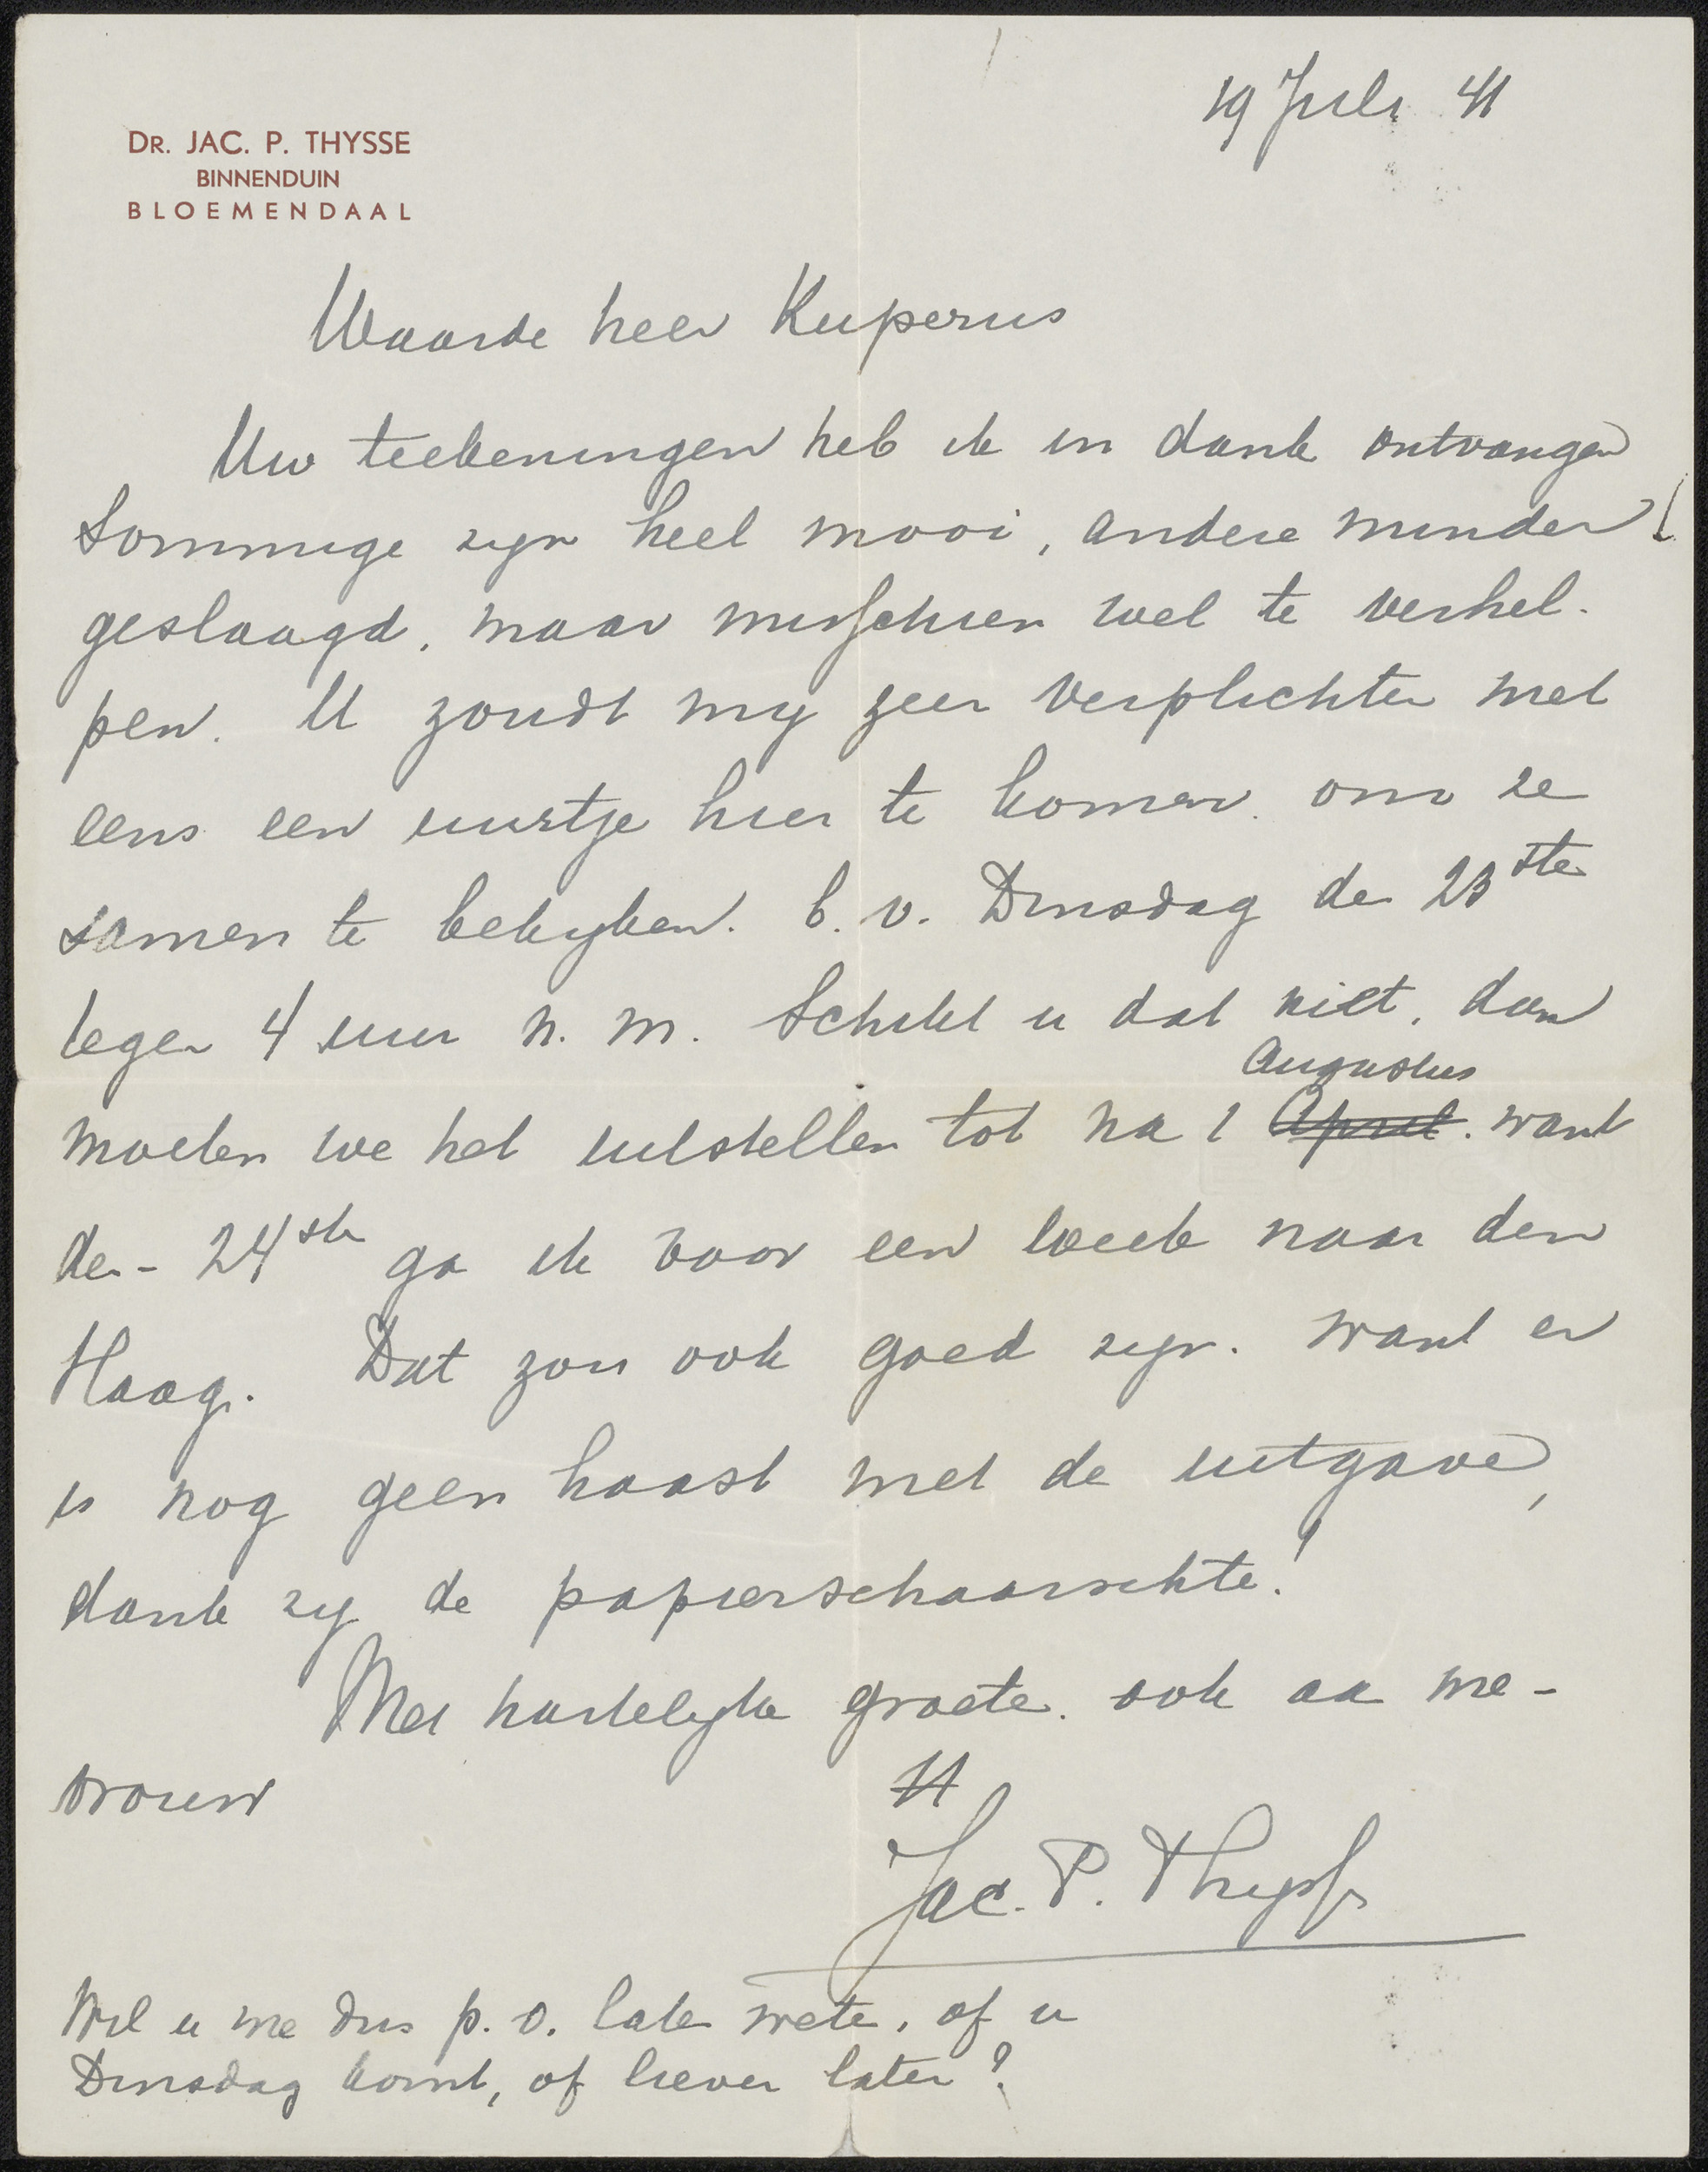 19 Juli 41
DR. JAC. P. THYSSE
BINNENDUIN
BLOEMENDAAL
Waarde heer Kuperus
Uw teekeningen heb ik in dank ontvangen
Sommige zyn heel mooi, andere minder
geslaagd, maar misschien wel te verhel-
pen. U zoudt my zeer verplichten met
eens een uurtje hier te komen om ze
samen te bekyken. b.v. Dinsdag de 23ste
tegen 4 uur n.m. Schikt u dat niet, dan
Augustus
moeten we het uitstellen tot na 1 April. want
den 24ste ga ik voor een week naar den
Haag. Dat zou ook goed zyn. want er
is nog geen haast met de uitgave,
dank zy de papierschaarschte!
Met hartelyke groete. ook aa me-
vrouw
tt
Jac. P. Thysse
Wil u me dus p.o. late wete, of u
Dinsdag komt, of liever later?